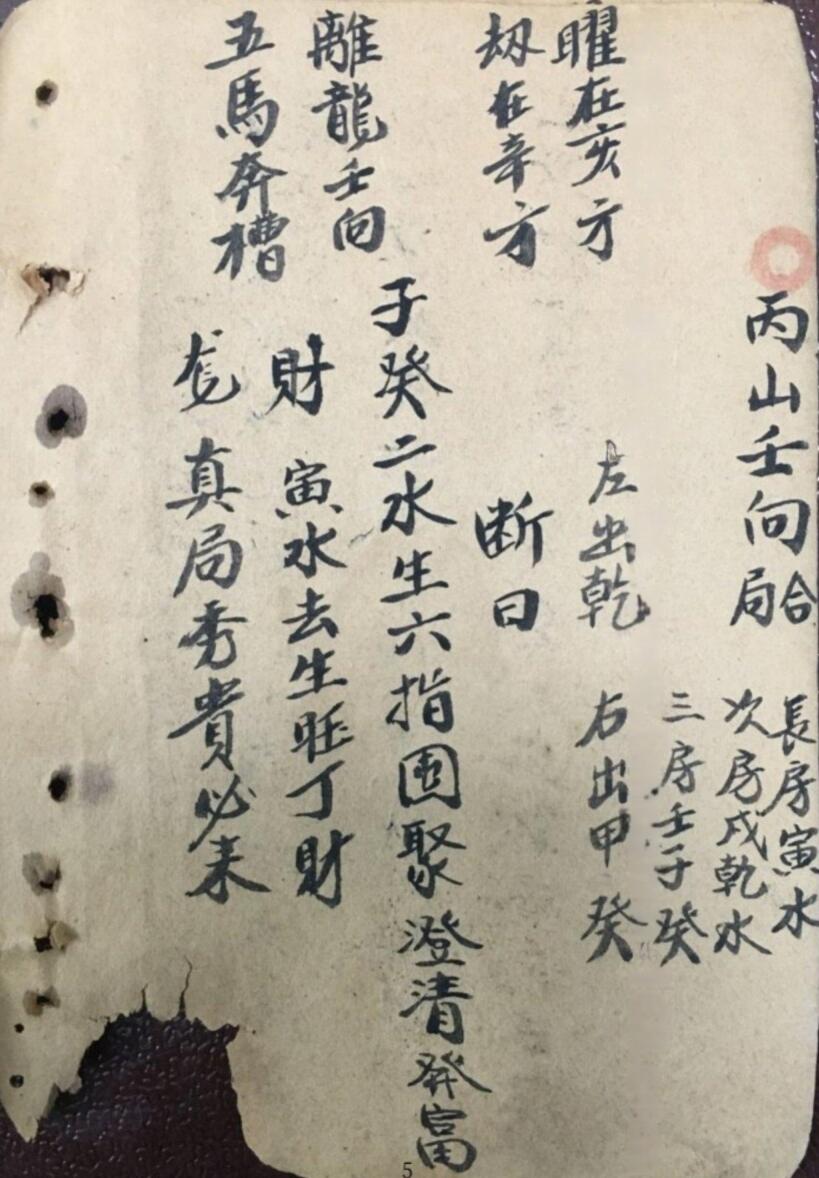 丙山壬向合局
長房寅水
次房戌乾水
三房壬子癸
曜在亥方
左出乾
右出甲癸
劫在辛方
断曰
子癸二水生六指囲聚澄清発富
離龍壬向
財
寅水去生旺丁財
五馬奔槽
真局秀貴必来
5